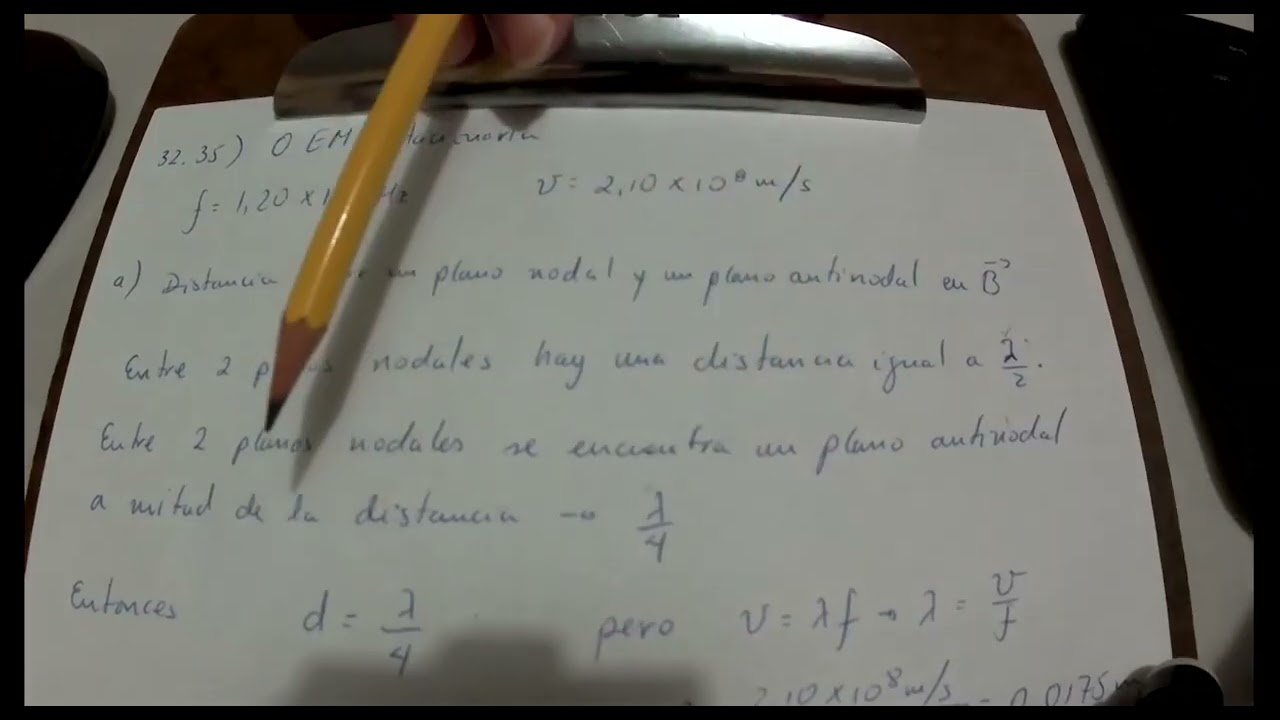 32.35) O EM
f = 1,20 × 1 Hz v = 2,10 × 10⁸ m/s
a) Distancia un plano nodal y un plano antinodal en B⃗
Entre 2 planos nodales hay una distancia igual a λ/2.
Entre 2 planos nodales se encuentra un plano antinodal
a mitad de la distancia → λ/4
Entonces d = λ/4 pero v = λf → λ = v/f
2,10 × 10⁸ m/s = 0,0175 m